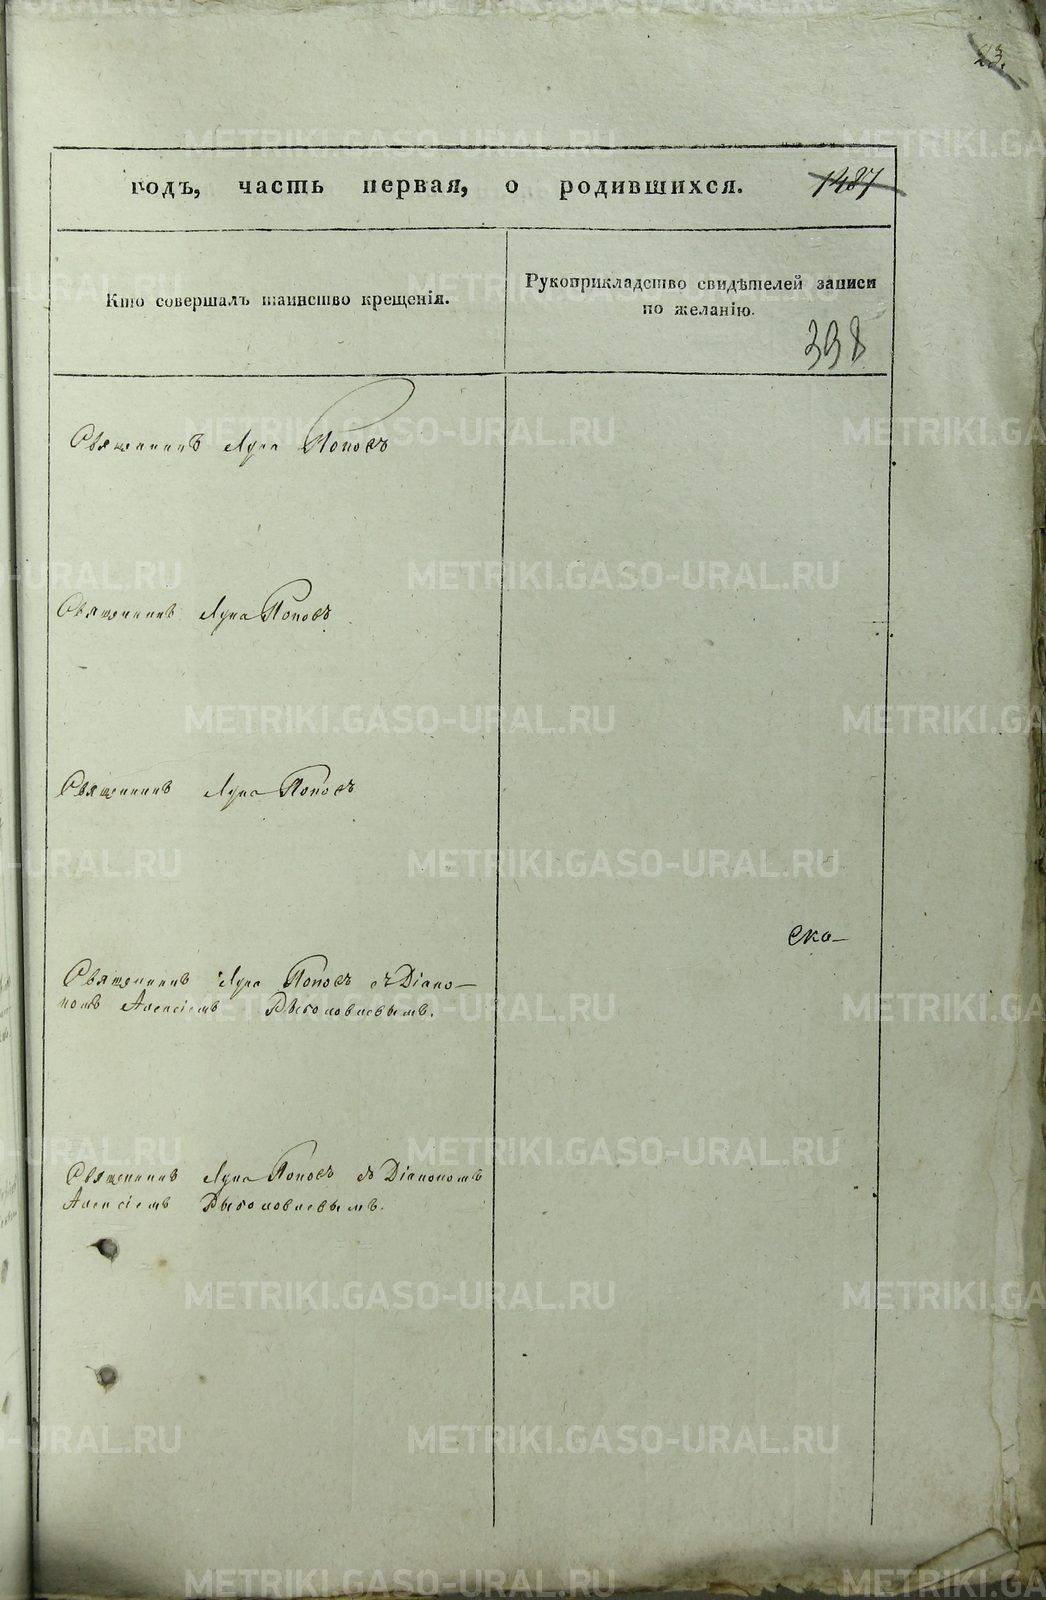 23.
годъ, часть первая, о родившихся. 1487
Кто совершалъ таинство крещенія.
Рукоприкладство свидѣтелей записи
по желанію.
398
Священникъ Лука Поповъ
Священникъ Лука Поповъ
Священникъ Лука Поповъ
Ско-
Священникъ Лука Поповъ съ Діако-
номъ Алексіемъ
Священникъ Лука Поповъ съ Діакономъ
Алексіемъ
METRIKI.GASO-URAL.RU